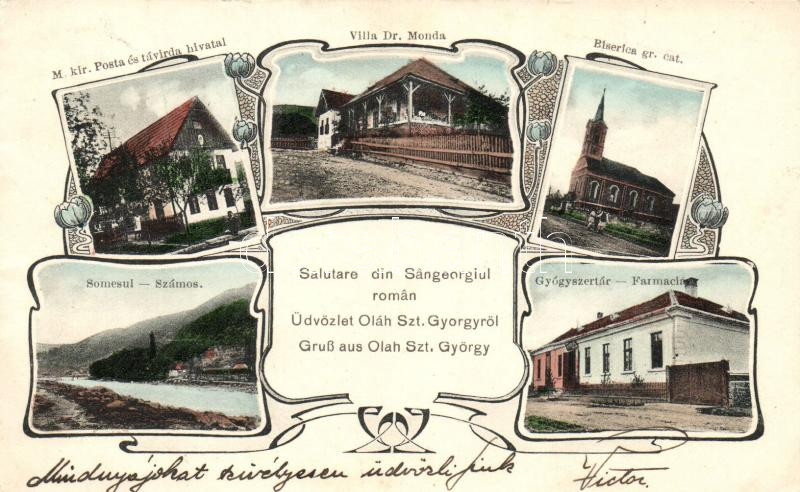 M. kir. Posta és távirda hivatal
Villa Dr. Monda
Biserica gr. cat.
Somesul — Számos.
Salutare din Sângeorgiul
román
Üdvözlet Oláh Szt. Gyorgyröl
Gruß aus Olah Szt. György
Gyógyszertár — Farmacia
Mindnyájokat szivélyesen üdvözli fiuk
Victor.